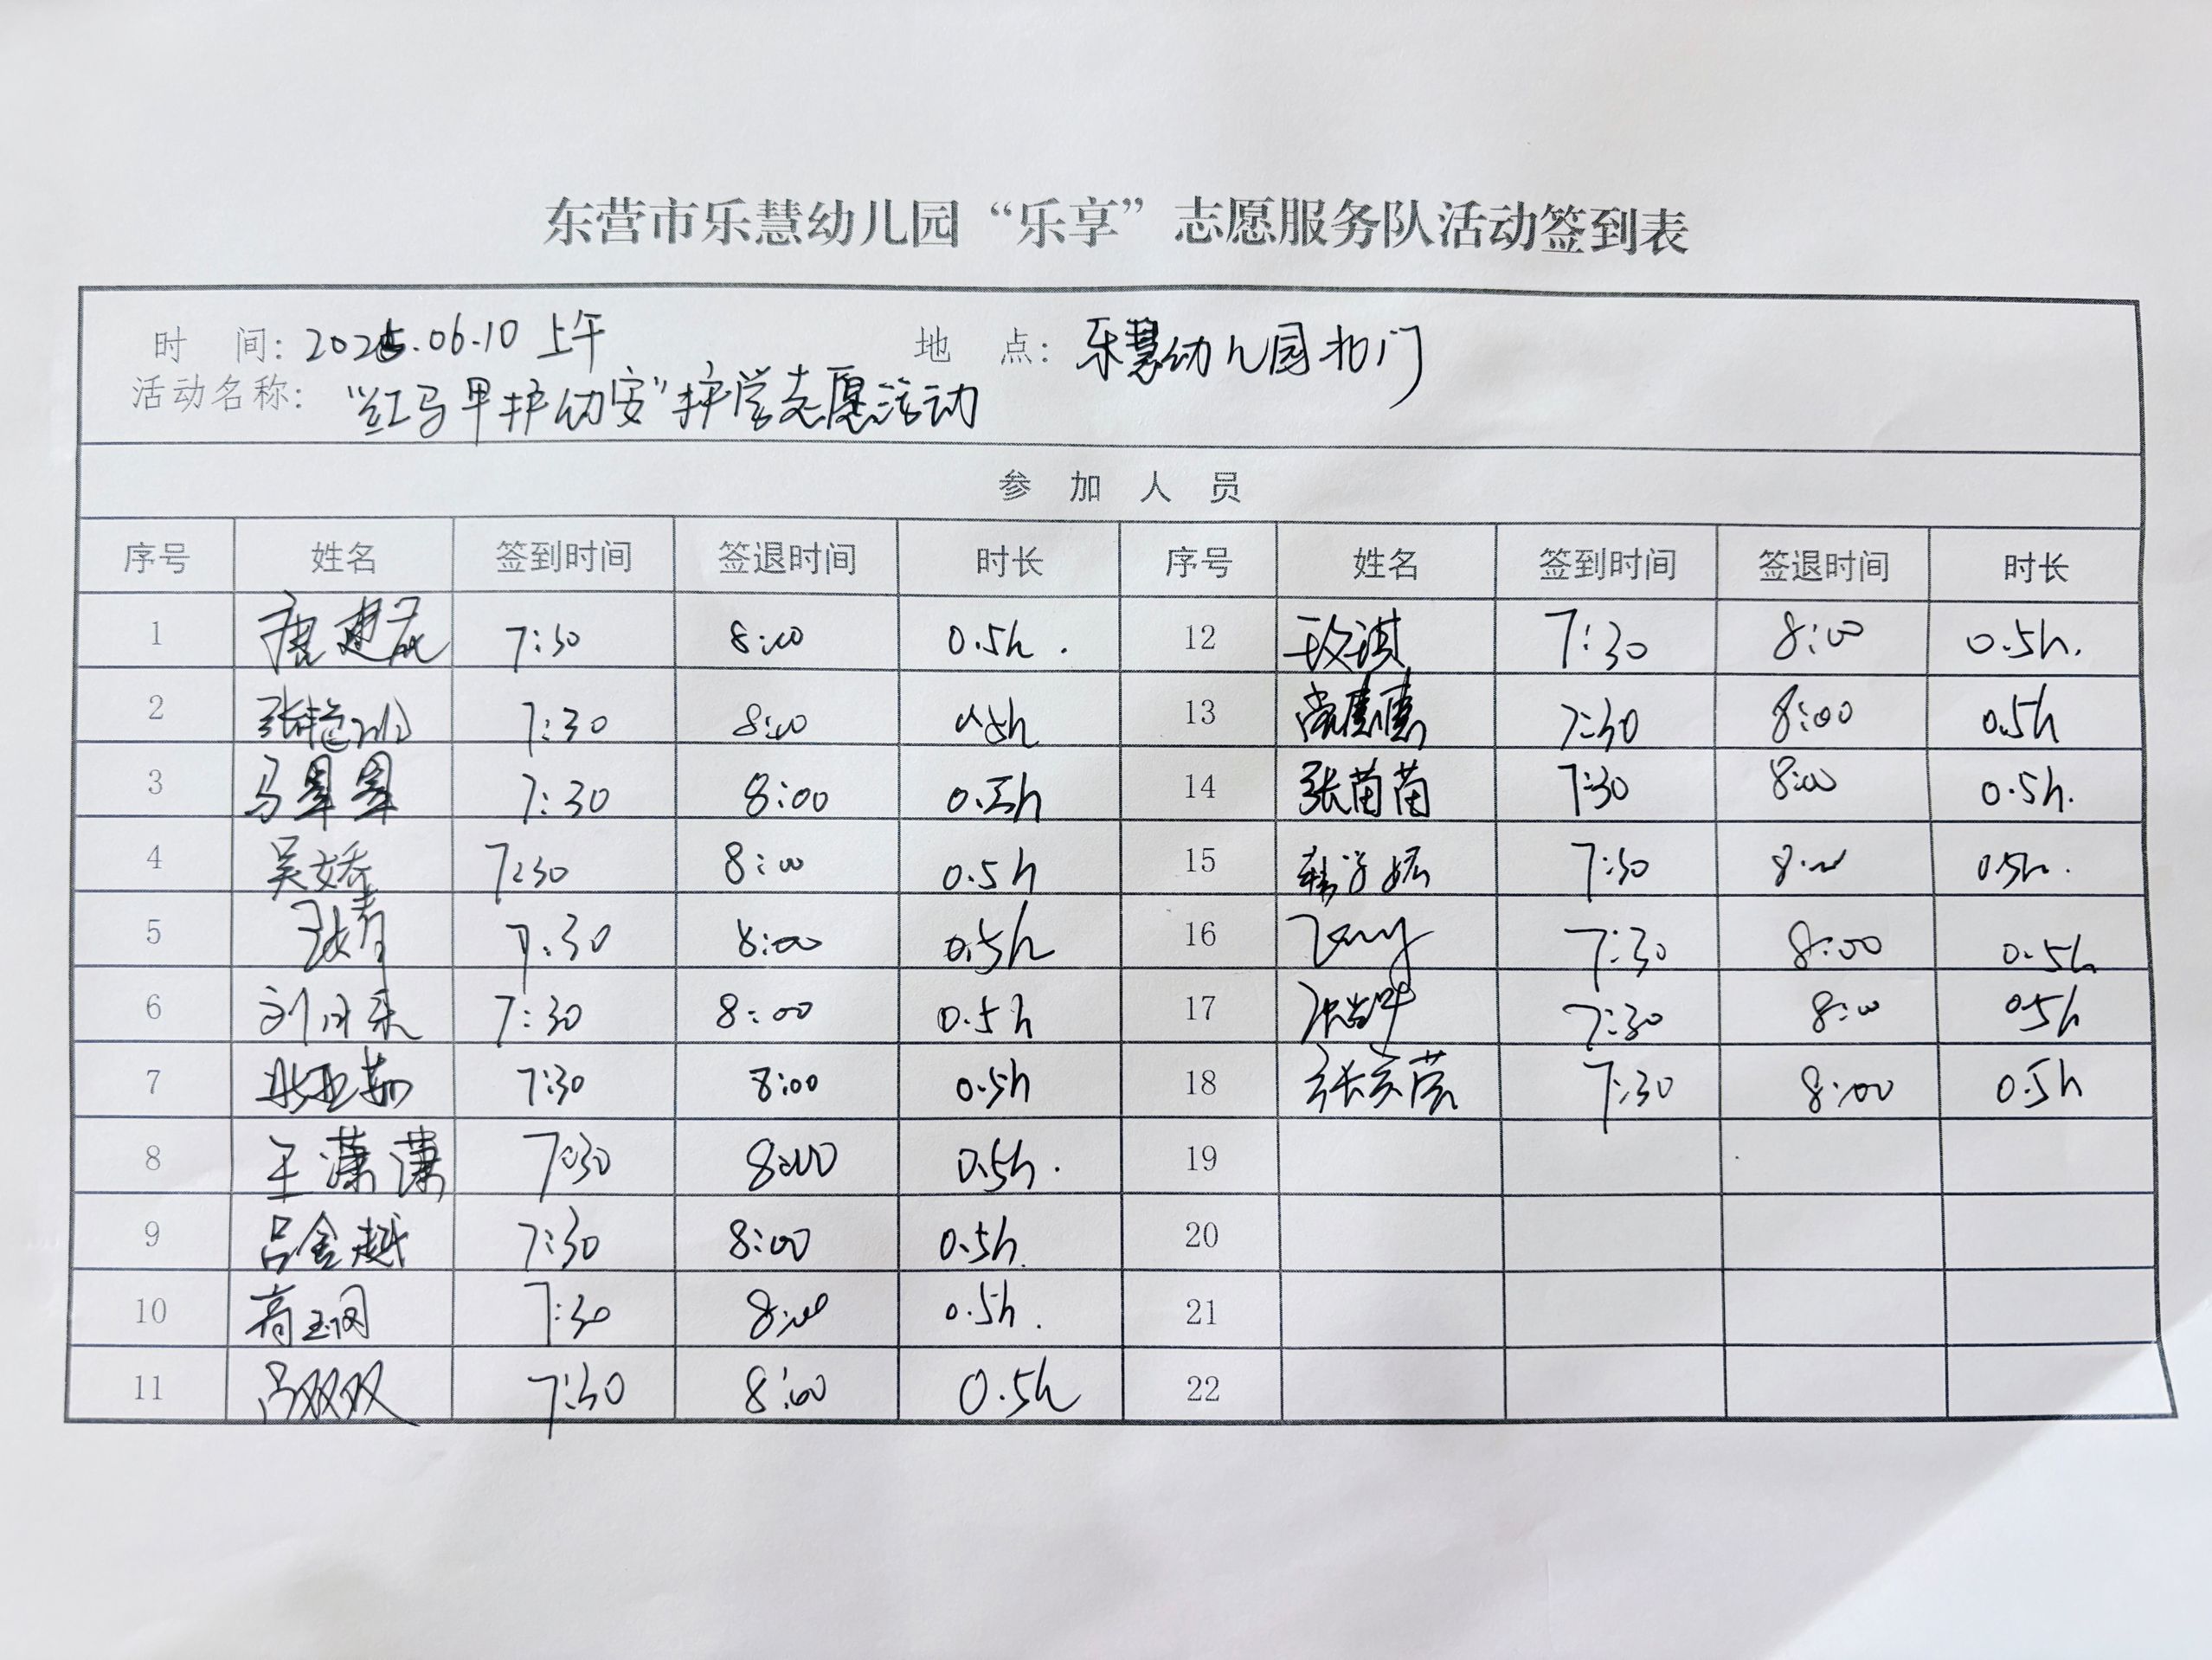 东营市乐慧幼儿园“乐享”志愿服务队活动签到表
时 间: 2025.06.10 上午 地 点: 乐慧幼儿园北门
活动名称: “红马甲护幼安”护学志愿活动
参 加 人 员
序号 姓名 签到时间 签退时间 时长 序号 姓名 签到时间 签退时间 时长
1 7:30 8:00 0.5h. 12 7:30 8:00 0.5h.
2 7:30 8:00 0.5h 13 7:30 8:00 0.5h
3 7:30 8:00 0.5h 14 张苗苗 7:30 8:00 0.5h.
4 吴娇 7:30 8:00 0.5h 15 7:30 8:00 0.5h.
5 7:30 8:00 0.5h 16 7:30 8:00 0.5h
6 7:30 8:00 0.5h 17 7:30 8:00 0.5h
7 7:30 8:00 0.5h 18 7:30 8:00 0.5h
8 王潇潇 7:30 8:00 0.5h. 19
9 吕金越 7:30 8:00 0.5h. 20
10 7:30 8:00 0.5h. 21
11 吕双双 7:30 8:00 0.5h 22